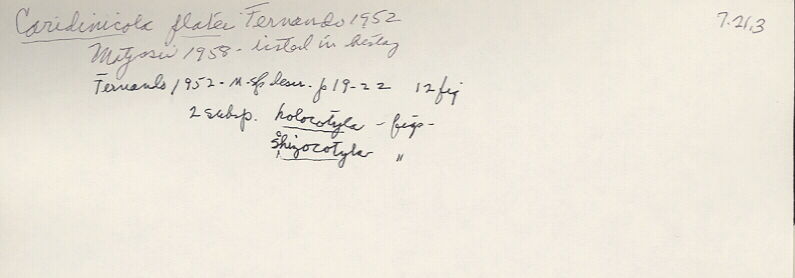 Caridinicola flatei Fernando 1952
7.21,3
Matjasic 1958 - listed in
Fernando 1952 - n. sp descr. p 19-22 12 fig
2 subsp. holocotyla - figs -
shizocotyla "